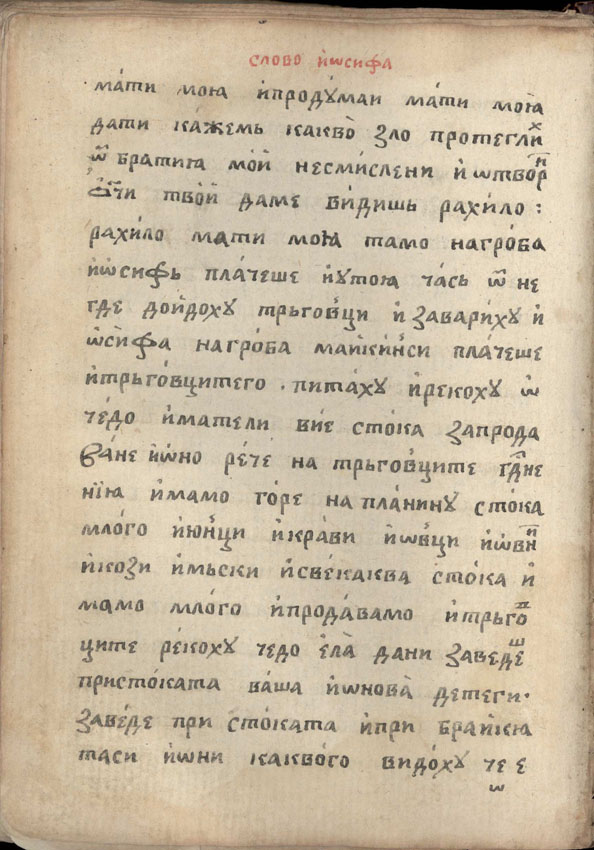 слово иѡсифа
мати моꙗ ипродꙋмаи мати моꙗ
дати кажемь какво зло протеглиⷯ
ѿ братиꙗ мои несмислени и ѡтворⷩ
ѡчи твои даме видишь рахило :
рахило мати моꙗ тамо нагроба
иѡсифь плачеше иутоꙗ чась ѿ не
где доидохꙋ трьговци и заварихꙋ и
ѡсифа нагроба маикинси плачеше
итрьговцитего . питахꙋ ирекохꙋ ѡ
чедо иматели вие стока запрода
ване иѡно рече на трьговците где не
нїꙗ имамо горе на планинꙋ стока
млого июнци икрави иѡвци иѡвнⷩ
икози имьски исвекаква стока и
мамо млого ипродавамо итрьгоⷡ
ците рекохꙋ чедо ела дани заведеⷲ
пристоката ваша иѡнова детеги·
заведе при стоката ипри браикꙗ
таси иѡни каквого видохꙋ че е
ѡ